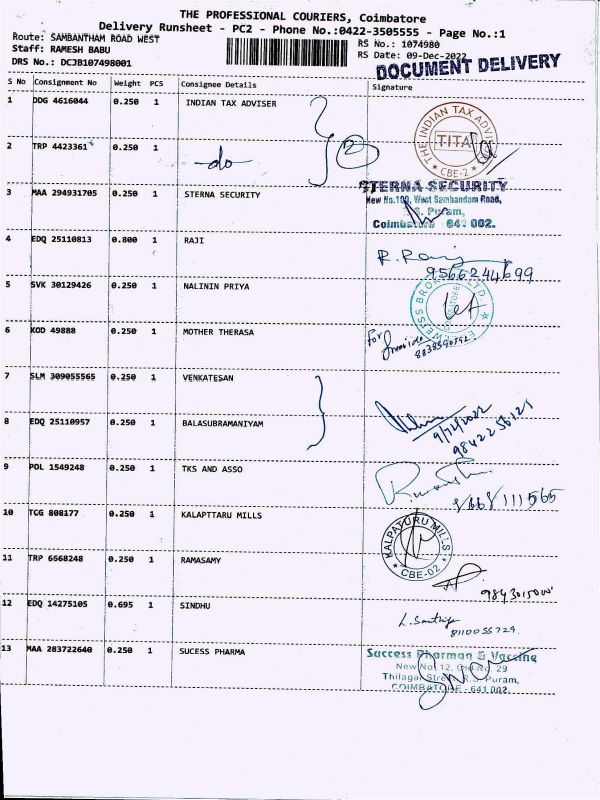 THE PROFESSIONAL COURIERS, Coimbatore
Delivery Runsheet - PC2 - Phone No.:0422-3505555 - Page No.:1
Route: SAMBANTHAM ROAD WEST
RS No.: 1074980
Staff: RAMESH BABU
RS Date: 09-Dec-2022
DRS No.: DCJB107498001
DOCUMENT DELIVERY
S No Consignment No Weight PCS Consignee Details Signature
1 DDG 4616044 0.250 1 INDIAN TAX ADVISER
THE INDIAN TAX ADVISER
TITA
* CBE-2 *
2 TRP 4423361 0.250 1 -do-
2
3 MAA 294931705 0.250 1 STERNA SECURITY
STERNA SECURITY
New No.100, West Sambandam Road,
R.S. Puram,
Coimbatore 641 002.
4 EDQ 25110813 0.800 1 RAJI
R. Raj
9566244699
5 SVK 30129426 0.250 1 NALININ PRIYA
6 KOD 49888 0.250 1 MOTHER THERASA
For
7 SLM 309055565 0.250 1 VENKATESAN
8 EDQ 25110957 0.250 1 BALASUBRAMANIYAM
9/12/2022
9 POL 1549248 0.250 1 TKS AND ASSO
10 TCG 808177 0.250 1 KALAPTTARU MILLS
KALPATURU MILLS
* CBE-02 *
11 TRP 6668248 0.250 1 RAMASAMY
12 EDQ 14275105 0.695 1 SINDHU
8110055729
13 MAA 283722640 0.250 1 SUCESS PHARMA
Success Pharman & Vaccine
New No. 12, Old No. 29
Thilagar Street, R.S. Puram,
COIMBATORE - 641 002